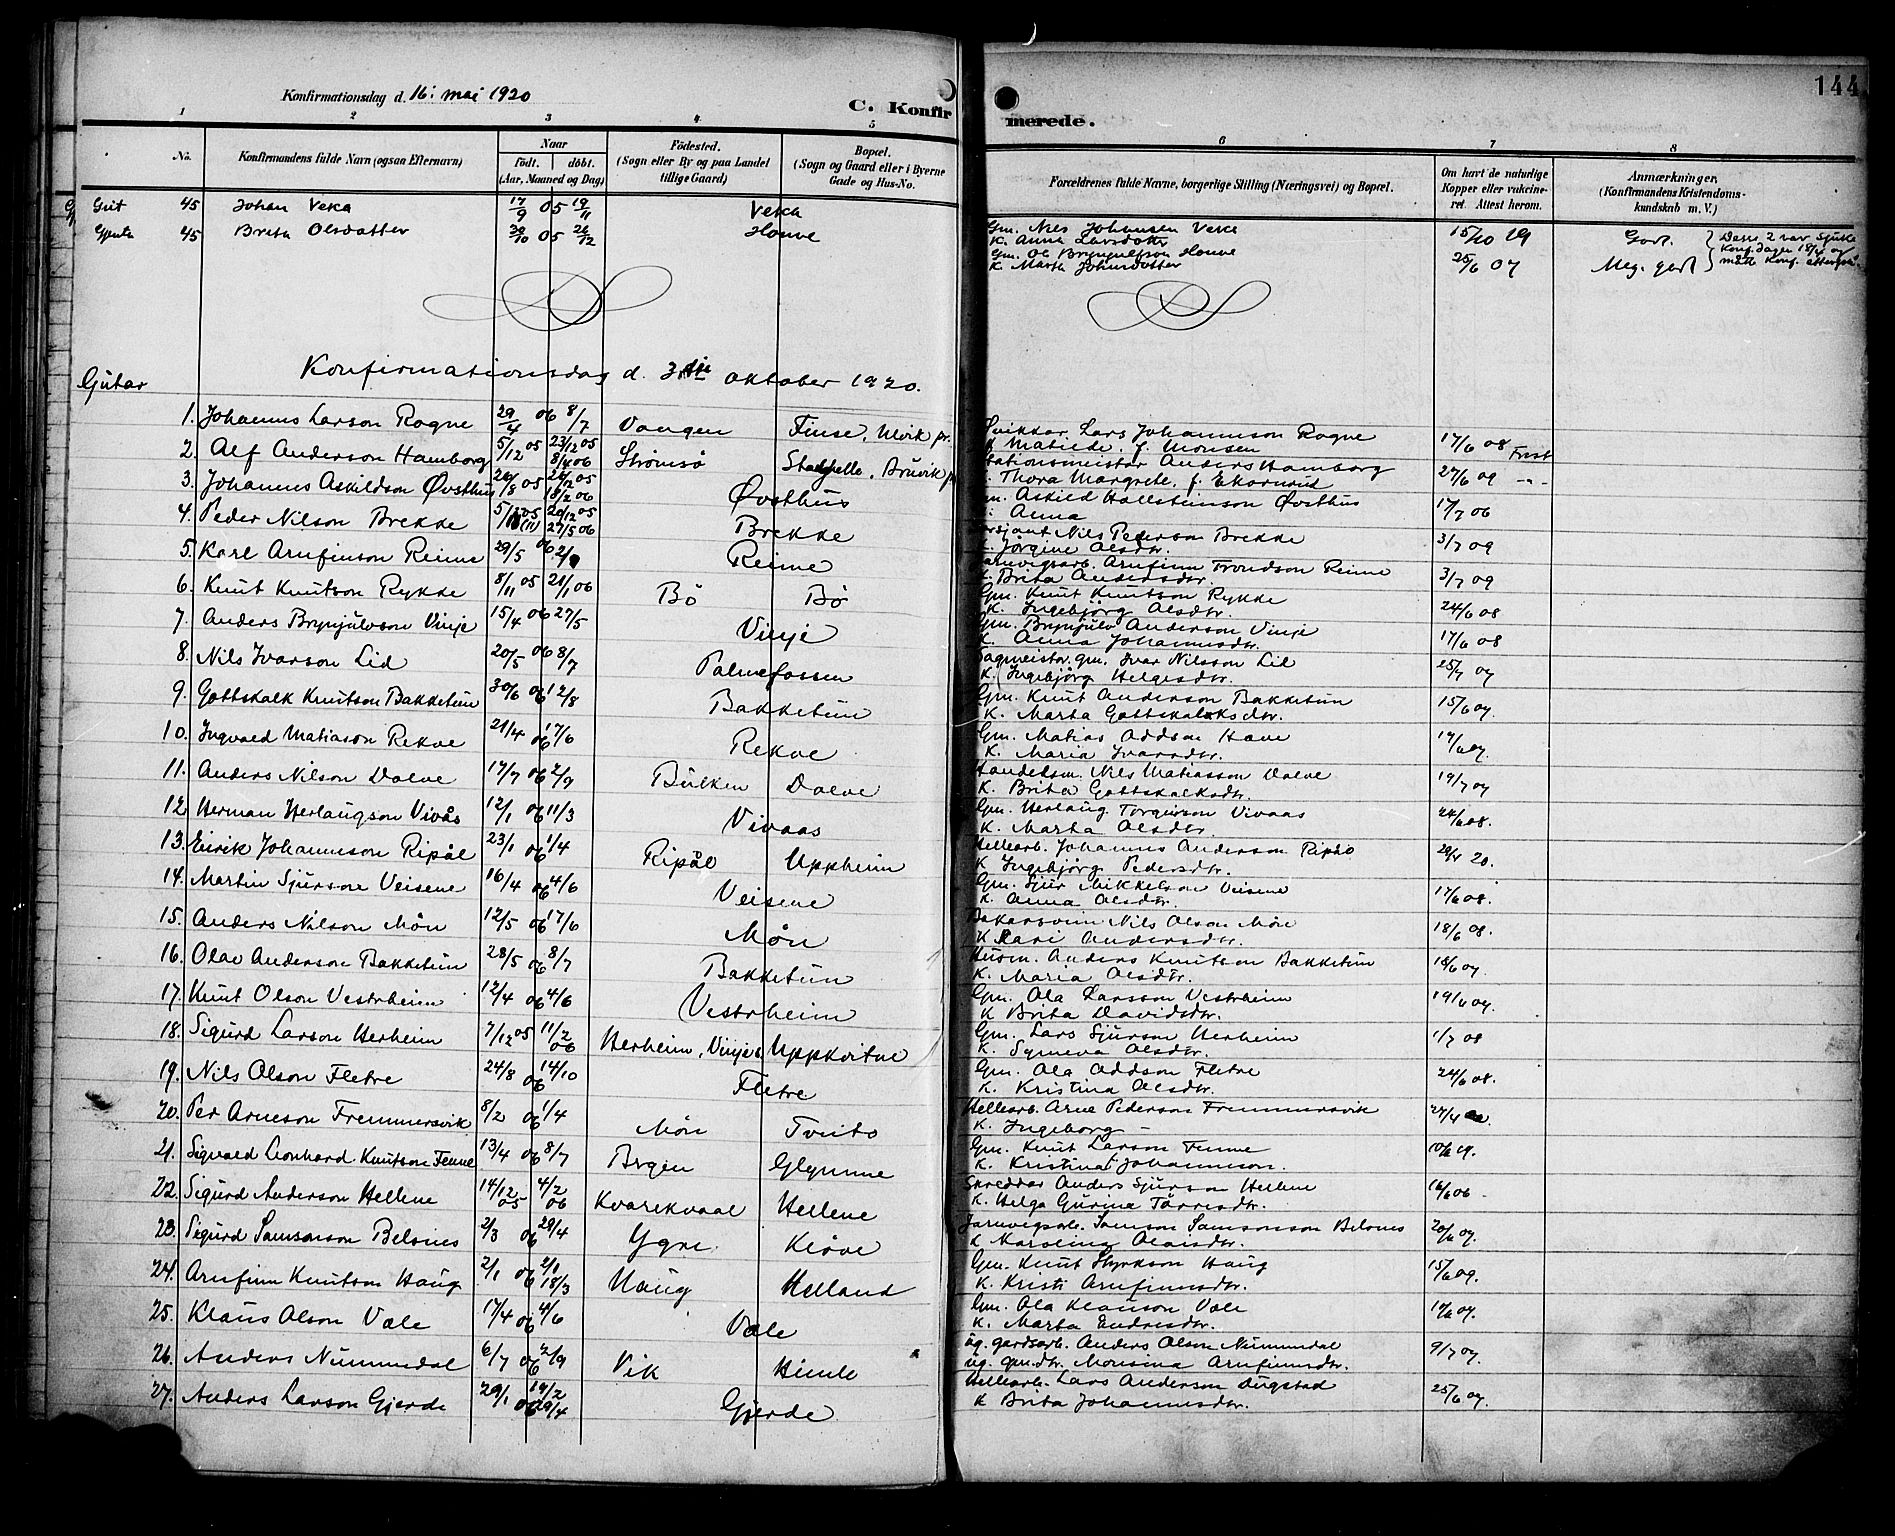 144
Konfirmationsdag d. 16: mai 1920
C. Konfirmerede.
1 2 3 4 5 6 7 8
No. Konfirmandens fulde Navn (ogsaa Efternavn) Naar født. døbt. (Aar, Maaned og Dag) Fødested. (Sogn eller By og paa Landet tillige Gaard) Bopæl. (Sogn og Gaard eller i Byerne Gade og Hus-No. Forældrenes fulde Navne, borgerlige Stilling (Næringsvei) og Bopæl. Om havt de naturlige Kopper eller vakcineret. Attest herom. Anmærkninger, (Konfirmandens Kristendomskundskab m. V.)
Gut 45 Johan Veka 17/9 05 19/11 Veka Gm. Nils Johansen Veka 15/10 19 Godt.
K. Anna Larsdotter
Gjenta 45 Brita Olsdatter 05 26/12 Houve Gm. Ol Brynjulfson Houve 25/6 07 Meg. godt
K. Marta Johnsdotter
Desse 2 var sjuke
Konfirmationsdag d. 3die oktober 1920.
Gutar
1. Johannes Larson Rogne 29/4 06 8/7 Vangen Finse, Ulvik pr. Lars Johannson Rogne 17/6 08
Matilde f. Monsen
2. Alf Anderson Hamborg 5/12 05 23/12 05 8/4 06 Strømsø Bruvik Stationsmeister Anders Hamborg 27/6 09
Thora Margrete, f. Ekornrud
3. Johannes Askildson Øvsthus 05 18/2 06 Øvsthus Askild Hallsteinson Øvsthus 17/7 06
Anna
4. Peder Nilson Brekke 20/12 05 27/5 06 Brekke Nils Pederson Brekke 3/7 09
Jørgine Olsdtr.
5. Karl Arnfinson Reime 29/5 06 Reime Arnfinn Trondson Reime 3/7 09
K. Brita Andersdtr.
6. Knut Knutson Rykke 8/11 05 21/1 06 Bö Bö Gm. Knut Knutson Rykke 24/6 08
K. Ingebjörg Olsdtr.
7. Anders Brynjulvson Vinje 15/4 06 27/5 Vinje Gm. Brynjulv Anderson Vinje 17/6 08
K. Anna Johannesdtr.
8. Nils Ivarson Lid 20/5 06 8/7 Palmefossen Sagmeister, gm. Ivar Nilsson Lid 25/7 07
K. Ingebjørg Helgesdtr.
9. Gottskalk Knutson Bakketun 30/6 06 12/8 Bakketun Gm. Knut Anderson Bakketun 15/6 07.
K. Marta Gottskalksdtr.
10. Ingvald Matiason Rekve 21/4 06 17/6 Rekve Gm. Matias Oddson Have 17/6 07.
K. Maria Ivarsdtr.
11. Anders Nilson Dalve 17/7 06 2/9 Bulken Dalve Handelsm. Nils Matiasson Dalve 19/7 07
K. Brita Gottskalksdtr.
12. Herman Herlaugson Vivås 12/1 06 11/3 Vivaas Gm. Herlaug Torgierson Vivaas 24/6 08.
K. Marta Olsdtr.
13. Eirik Johanneson Ripål 23/1 06 1/4 Ripål Uppheim Hellearb. Johannes Anderson 29/4 20.
K. Ingebjørg Pedersdtr.
14. Martin Sjurson Veisene 16/4 06 4/6 Veisene Gm. Sjur Mikkelson Veisene 17/6 08.
K. Anna Olsdtr.
15. Anders Nilson Mön 12/5 06 17/6 Mön Bakarsvein Nils Olson Mön 18/6 08.
K. Kari Andersdtr.
16. Olav Anderson Bakketun 28/5 06 8/7 Bakketun Husm. Anders Knutson Bakketun 18/6 07.
K. Maria Olsdtr.
17. Knut Olson Vestrheim 12/4 06 4/6 Vestrheim Gm. Ola Larsson Vestrheim 19/6 07.
K. Brita Davidsdtr.
18. Sigurd Larson Herheim 7/12 05 11/2 06 Herheim, Vinje s. Uppkvitne Gm. Lars Sjurson Herheim 1/7 08
K. Synneva Olsdtr.
19. Nils Olson Fletre 24/8 06 14/10 Fletre Gm. Ola Oddson Fletre 24/6 08.
K. Kristina Olsdtr.
20. Per Arneson Fremmersvik 8/2 06 1/4 Mön Tvito Hellearb. Arne Pederson Fremmersvik
K. Ingeborg —
21. Sigvald Leonhard Knutson Fenne 13/4 06 8/7 Brgen Glymme Gm. Knut Larson Fenne 19.
K. Kristina Johannson.
22. Sigurd Anderson Hellene 14/12 05 4/2 06 Kvarekvaal Hellene Skreddar Anders Sjurson Hellene 16/6 06
K. Helga Gurine Törresdtr.
23. Sigurd Samsonson Belsnes 2/3 06 29/4 Ygre Klöve Jarnvegsarb. Samson Samsonson Belsnes 20/6 07.
K. Karolina Olaisdtr.
24. Arnfinn Knutson Haug 2/1 06 18/3 Haug Helland Gm. Knut Styrkson Haug 15/6 09.
K. Kristi Arnfinnsdtr.
25. Klaus Olson Væle 17/4 06 4/6 Væle Gm. Ola Klauson Væle 17/6 07.
K. Marta Endresdtr.
26. Anders Nummedal 6/7 06 2/9 Vik Himle ug. gardsarb. Anders Olson Nummedal 9/7 07.
ug. gm.dtr. Monsina Arnfinnsdtr.
27. Anders Larson Gjerde 29/1 06 19/2 29/4 Gjerde Hellearb. Lars Anderson Dugstad 25/6 07.
K. Brita Johannesdtr.